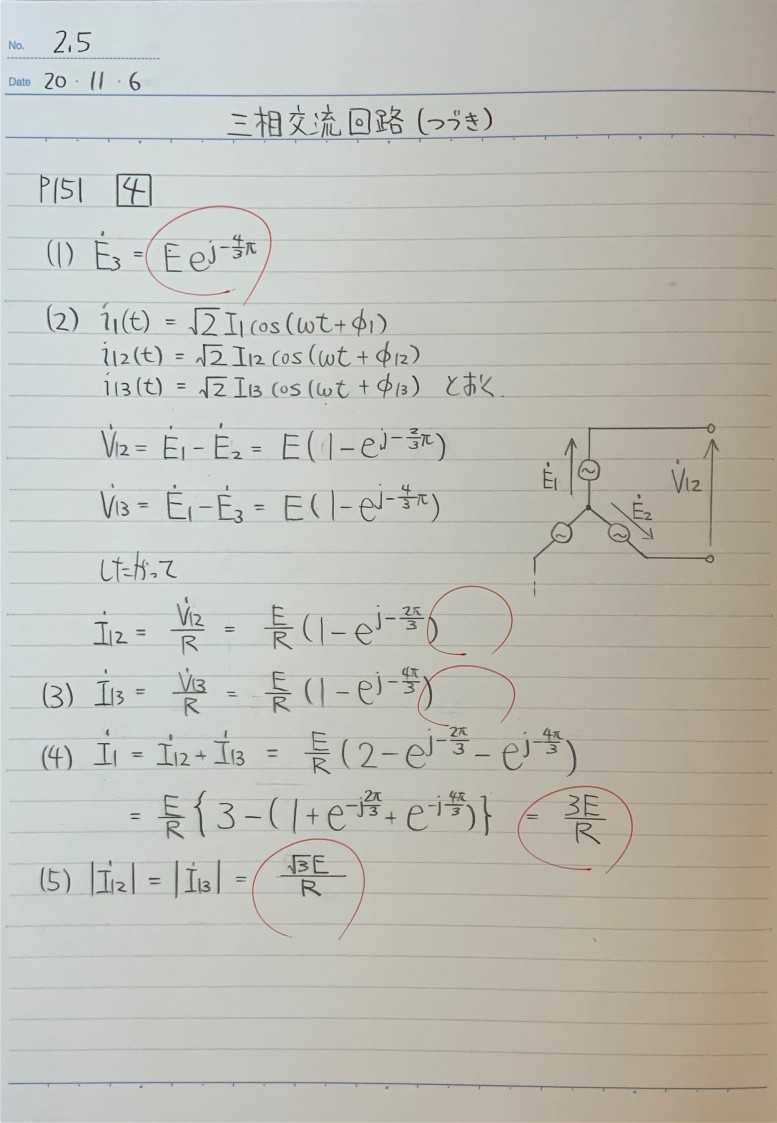 No. 2.5
Date 20・11・6
三相交流回路(つづき)
P151 4
(1) Ė₃ = E e^{j-\frac{4}{3}π}
(2) i₁(t) = √2 I₁ cos(ωt+φ₁)
i₁₂(t) = √2 I₁₂ cos(ωt+φ₁₂)
i₁₃(t) = √2 I₁₃ cos(ωt+φ₁₃) とおく.
V̇₁₂ = Ė₁ - Ė₂ = E(1 - e^{j-\frac{2}{3}π})
V̇₁₃ = Ė₁ - Ė₃ = E(1 - e^{j-\frac{4}{3}π})
Ė₁ Ė₂ V̇₁₂
したがって
İ₁₂ = \frac{V̇₁₂}{R} = \frac{E}{R}(1 - e^{j-\frac{2π}{3}})
(3) İ₁₃ = \frac{V̇₁₃}{R} = \frac{E}{R}(1 - e^{j-\frac{4π}{3}})
(4) İ₁ = İ₁₂ + İ₁₃ = \frac{E}{R}(2 - e^{j-\frac{2π}{3}} - e^{j-\frac{4π}{3}})
= \frac{E}{R}{3 - (1 + e^{-j\frac{2π}{3}} + e^{-j\frac{4π}{3}})} = \frac{3E}{R}
(5) |İ₁₂| = |İ₁₃| = \frac{√3E}{R}